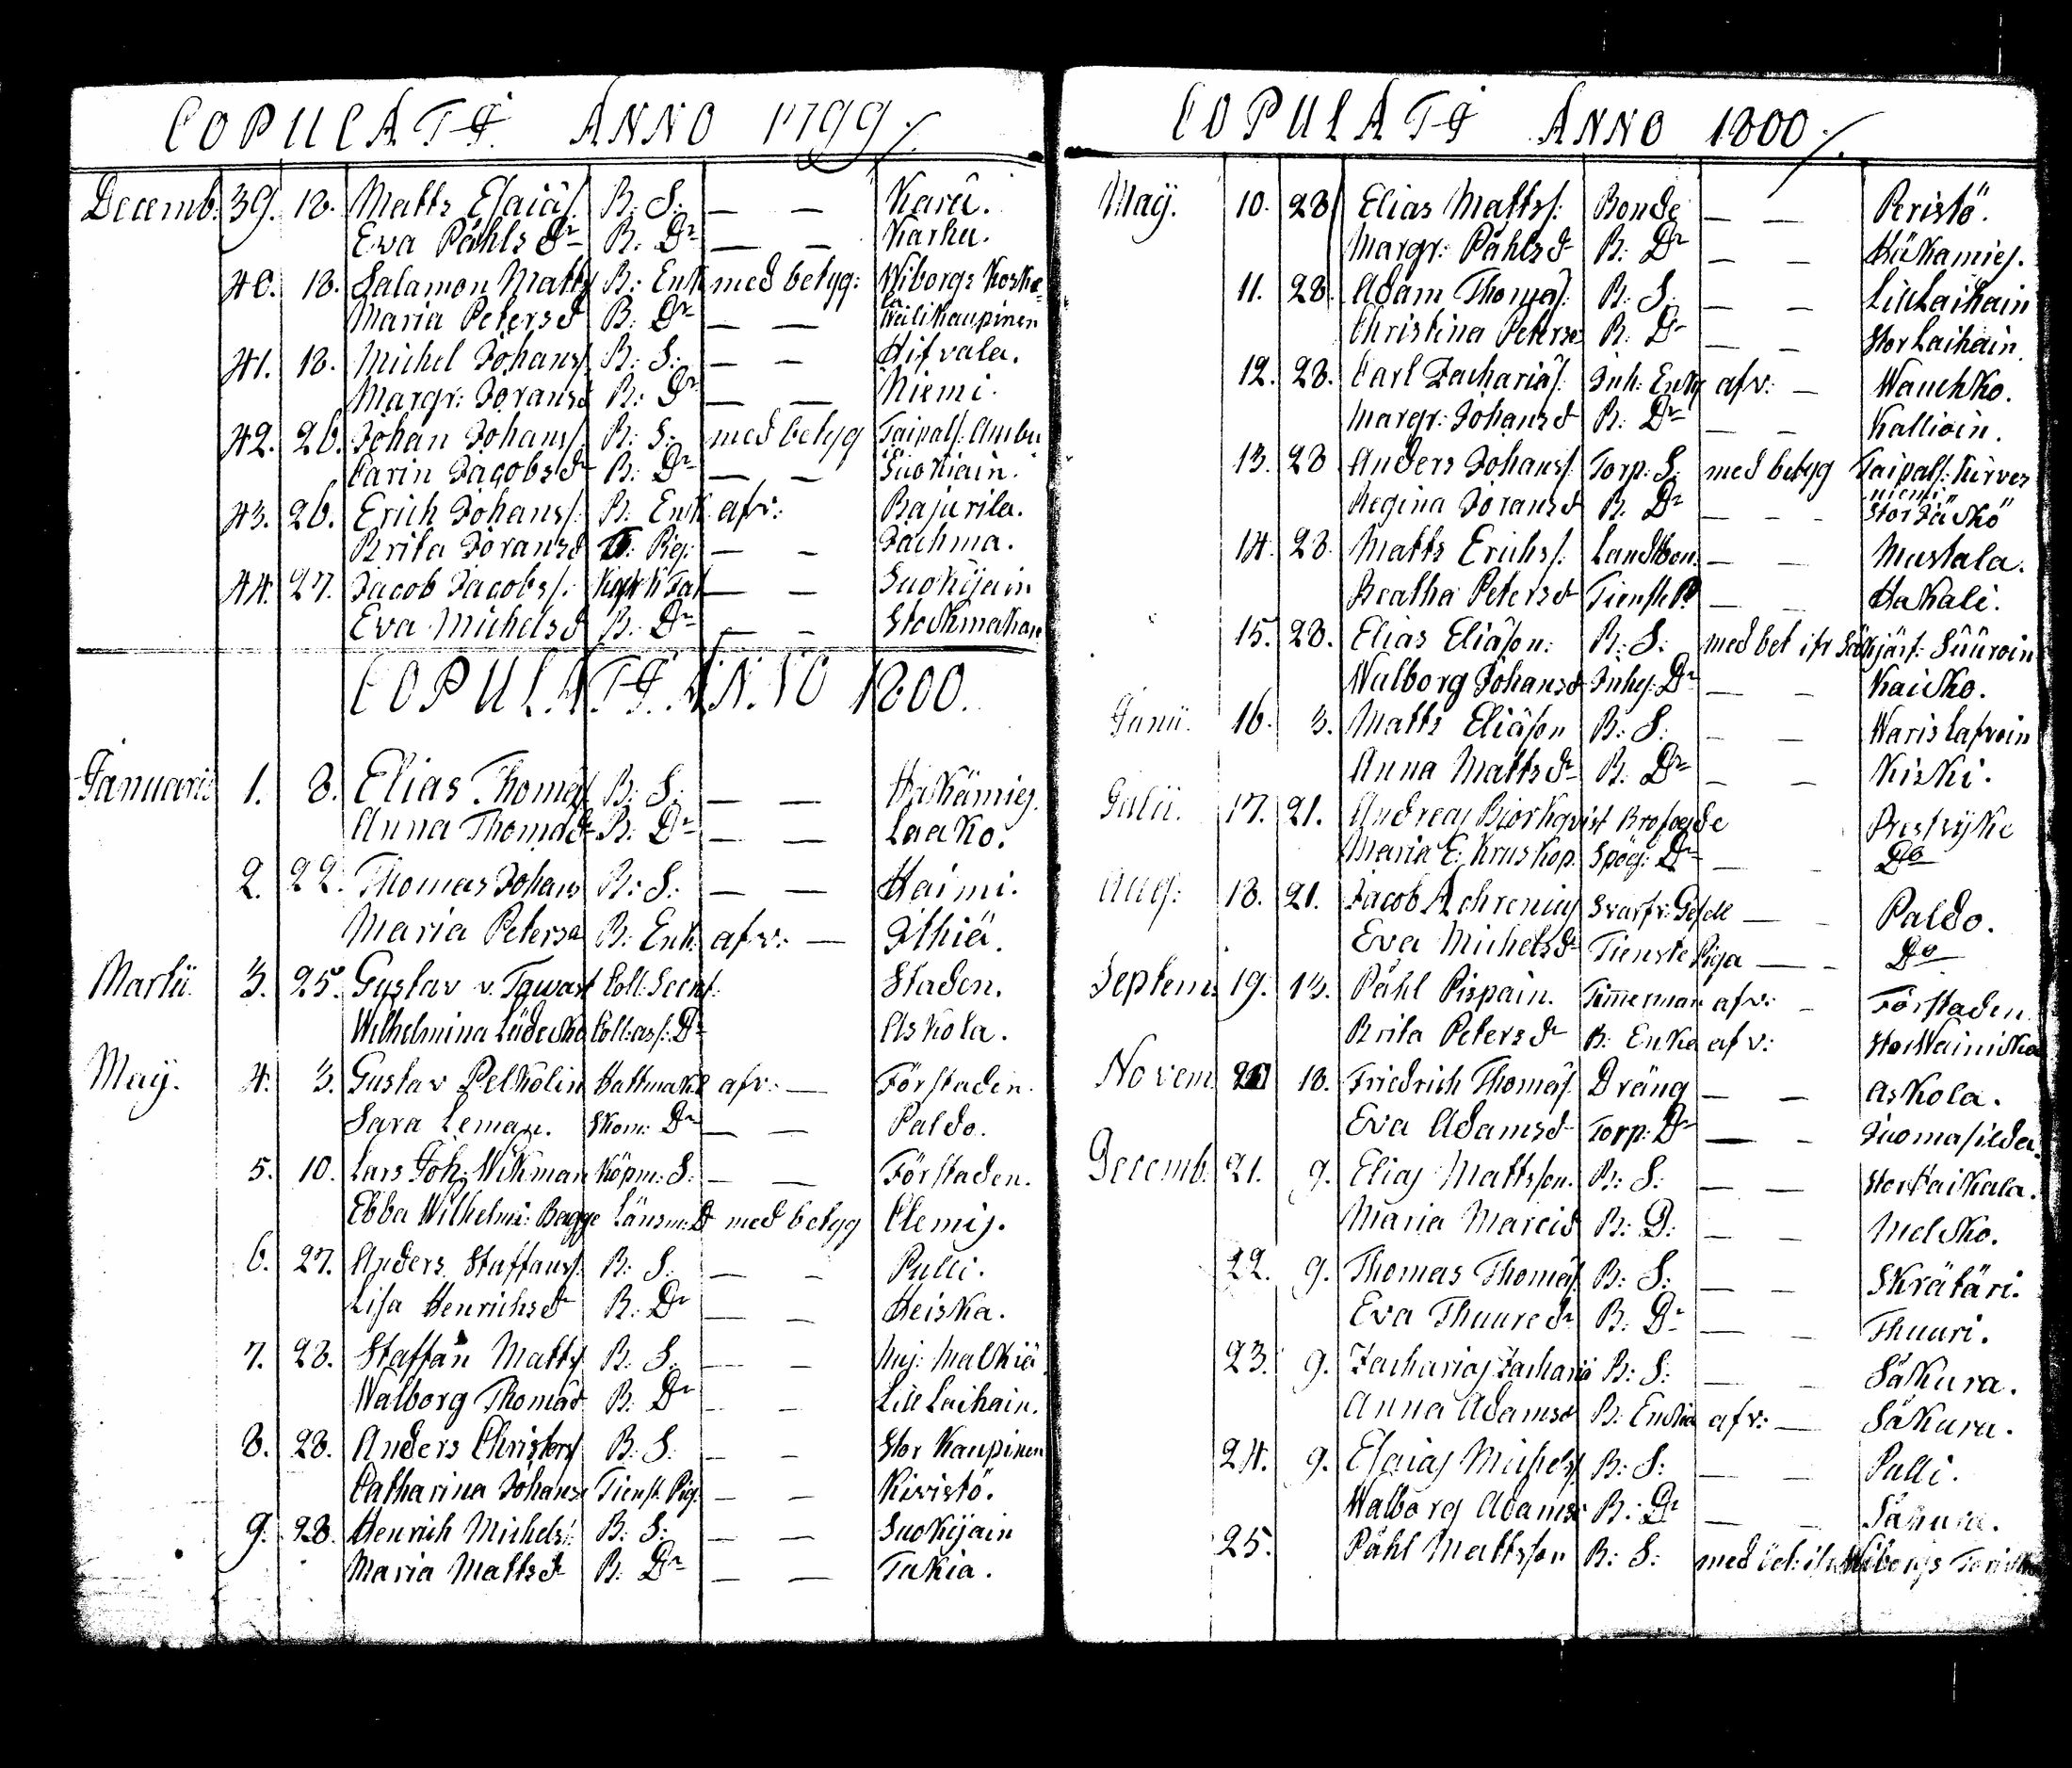 COPULATI ANNO 1799.
Decemb: 39. 18. Matts Esaiæs: B: S: — — Karu.
Eva Påhls dr B: Dr — — Karhu.
40. 18. Salamon Matts B: Enk med betyg: Wiborgs Koske-
la
Maria Petersd B: Dr — — Wälikaupinen
41. 18. Michel Johans: B: S: — — Hifvala.
Margr: Joransd B: Dr — — Niemi.
42. 26. Johan Johans: B: S: med betyg Taipals: Ambu
Carin Jacobsdr B: Dr — — Suokiain.
43. 26. Erich Johans: B: Enk afv: Rajurila.
Brita Joransd T: Pig: — — Jachma.
44. 27. Jacob Jacobs: — — Suokijain
Eva Michelsd B: Dr — — Stockmakar
COPULATI ANNO 1800.
Januarii 1. 8. Elias Thomæs B: S: — — Häkämies.
Anna Thomædr B: Dr — — Laako.
2. 22. Thomas Johans B: S: — — Haimi.
Maria Petersd B: Enk: afv: — Ithiä.
Martii 3. 25. Gustav v. Tawast Coll: Secret: Staden.
Wilhelmina Lüdecke Coll: ass: Dr Askola.
Maij. 4. 3. Gustav Pelkolin Hattmak: afv: — Förstaden.
Sara Leman. Skom: Dr — — Paldo.
5. 10. Lars Joh: Wikman Köpm: S: — — Förstaden.
Ebba Wilhelmi: Bagge Länsm: D med betyg Clemis.
6. 27. Anders Staffans: B: S: — — Pulli.
Lisa Henrichsdr B: Dr — — Heiska.
7. 28. Staffan Matts B: S: — — Nuj: Malkiä
Walborg Thomæd B: Dr — — Lill Laihain.
8. 28. Anders Christers B: S: — — Stor Kaupinen
Catharina Johans Tienst: Pig: — — Kivistö.
9. 28. Henrich Michels: B: S: — — Suokijain
Maria Mattsdr B: Dr — — Takia.
COPULATI ANNO 1800.
Maij. 10. 28 Elias Matts: Bonde — — Peristö.
Margr: Påhlsd B: Dr — — Häkämies.
11. 28. Adam Thomæs: B: S: — — Lill Laihain
Christina Peters B: Dr — — Stor Laihain.
12. 28. Carl Zachariæs: Inh: Enk afv: — Wauchko.
Margr: Johansd B: Dr — — Kallioin.
13. 28 Anders Johans: Torp: S: med betyg Taipals: Kirves
niemi
Regina Joransd B. Dr — — Stor Jäskö
14. 28. Matts Erichs: Landbon. — — Mustala.
Beatha Petersd Tienste P — — Hakali.
15. 28. Elias Eliæson: B: S: med bet ifr Säkjärf: Süüroin
Walborg Johansd Inhs: Dr — — Kaisko.
Junii. 16. 3. Matts Eliæson B: S: — — Waris Lafvoin
Anna Mattsdr B: Dr — — Kiski.
Julii. 17. 21. Andreas Biorkqvist Brofogde Prestrijke
Maria E: Kruskop. Spög: Dr — Do
Aug: 18. 21. Jacob Achrenius Svarfv: Gesell — — Paldo.
Eva Michelsdr Tienste Piga — — Do
Septem: 19. 13. Påhl Pispain. Timmerman afv: — Förstaden
Brita Petersdr B: Enka afv: Stor Wainikka
Novem 18. Friedrich Thomæs: Dräng — — Askola.
Eva Adamsd Torp: Dr — — Suomasilda.
Decemb: 21. 9. Elias Mattsson. B: S: — — Stor Haikala.
Maria Marcid B: D: — — Melsko.
22. 9. Thomas Thomæs: B: S: — — Skrätäri.
Eva Thuuredr B: Dr — — Thuuri.
23. 9. Zacharias Zachariæ B: S: — — Säkura.
Anna Adamsd B: Enka afv: — Säkura.
24. 9. Esaias Michels: B: S: — — Pulli.
Walborg Adams B: Dr — — Säkura.
25. Påhl Mattsson B: S: med bet: ifr Wiborgs